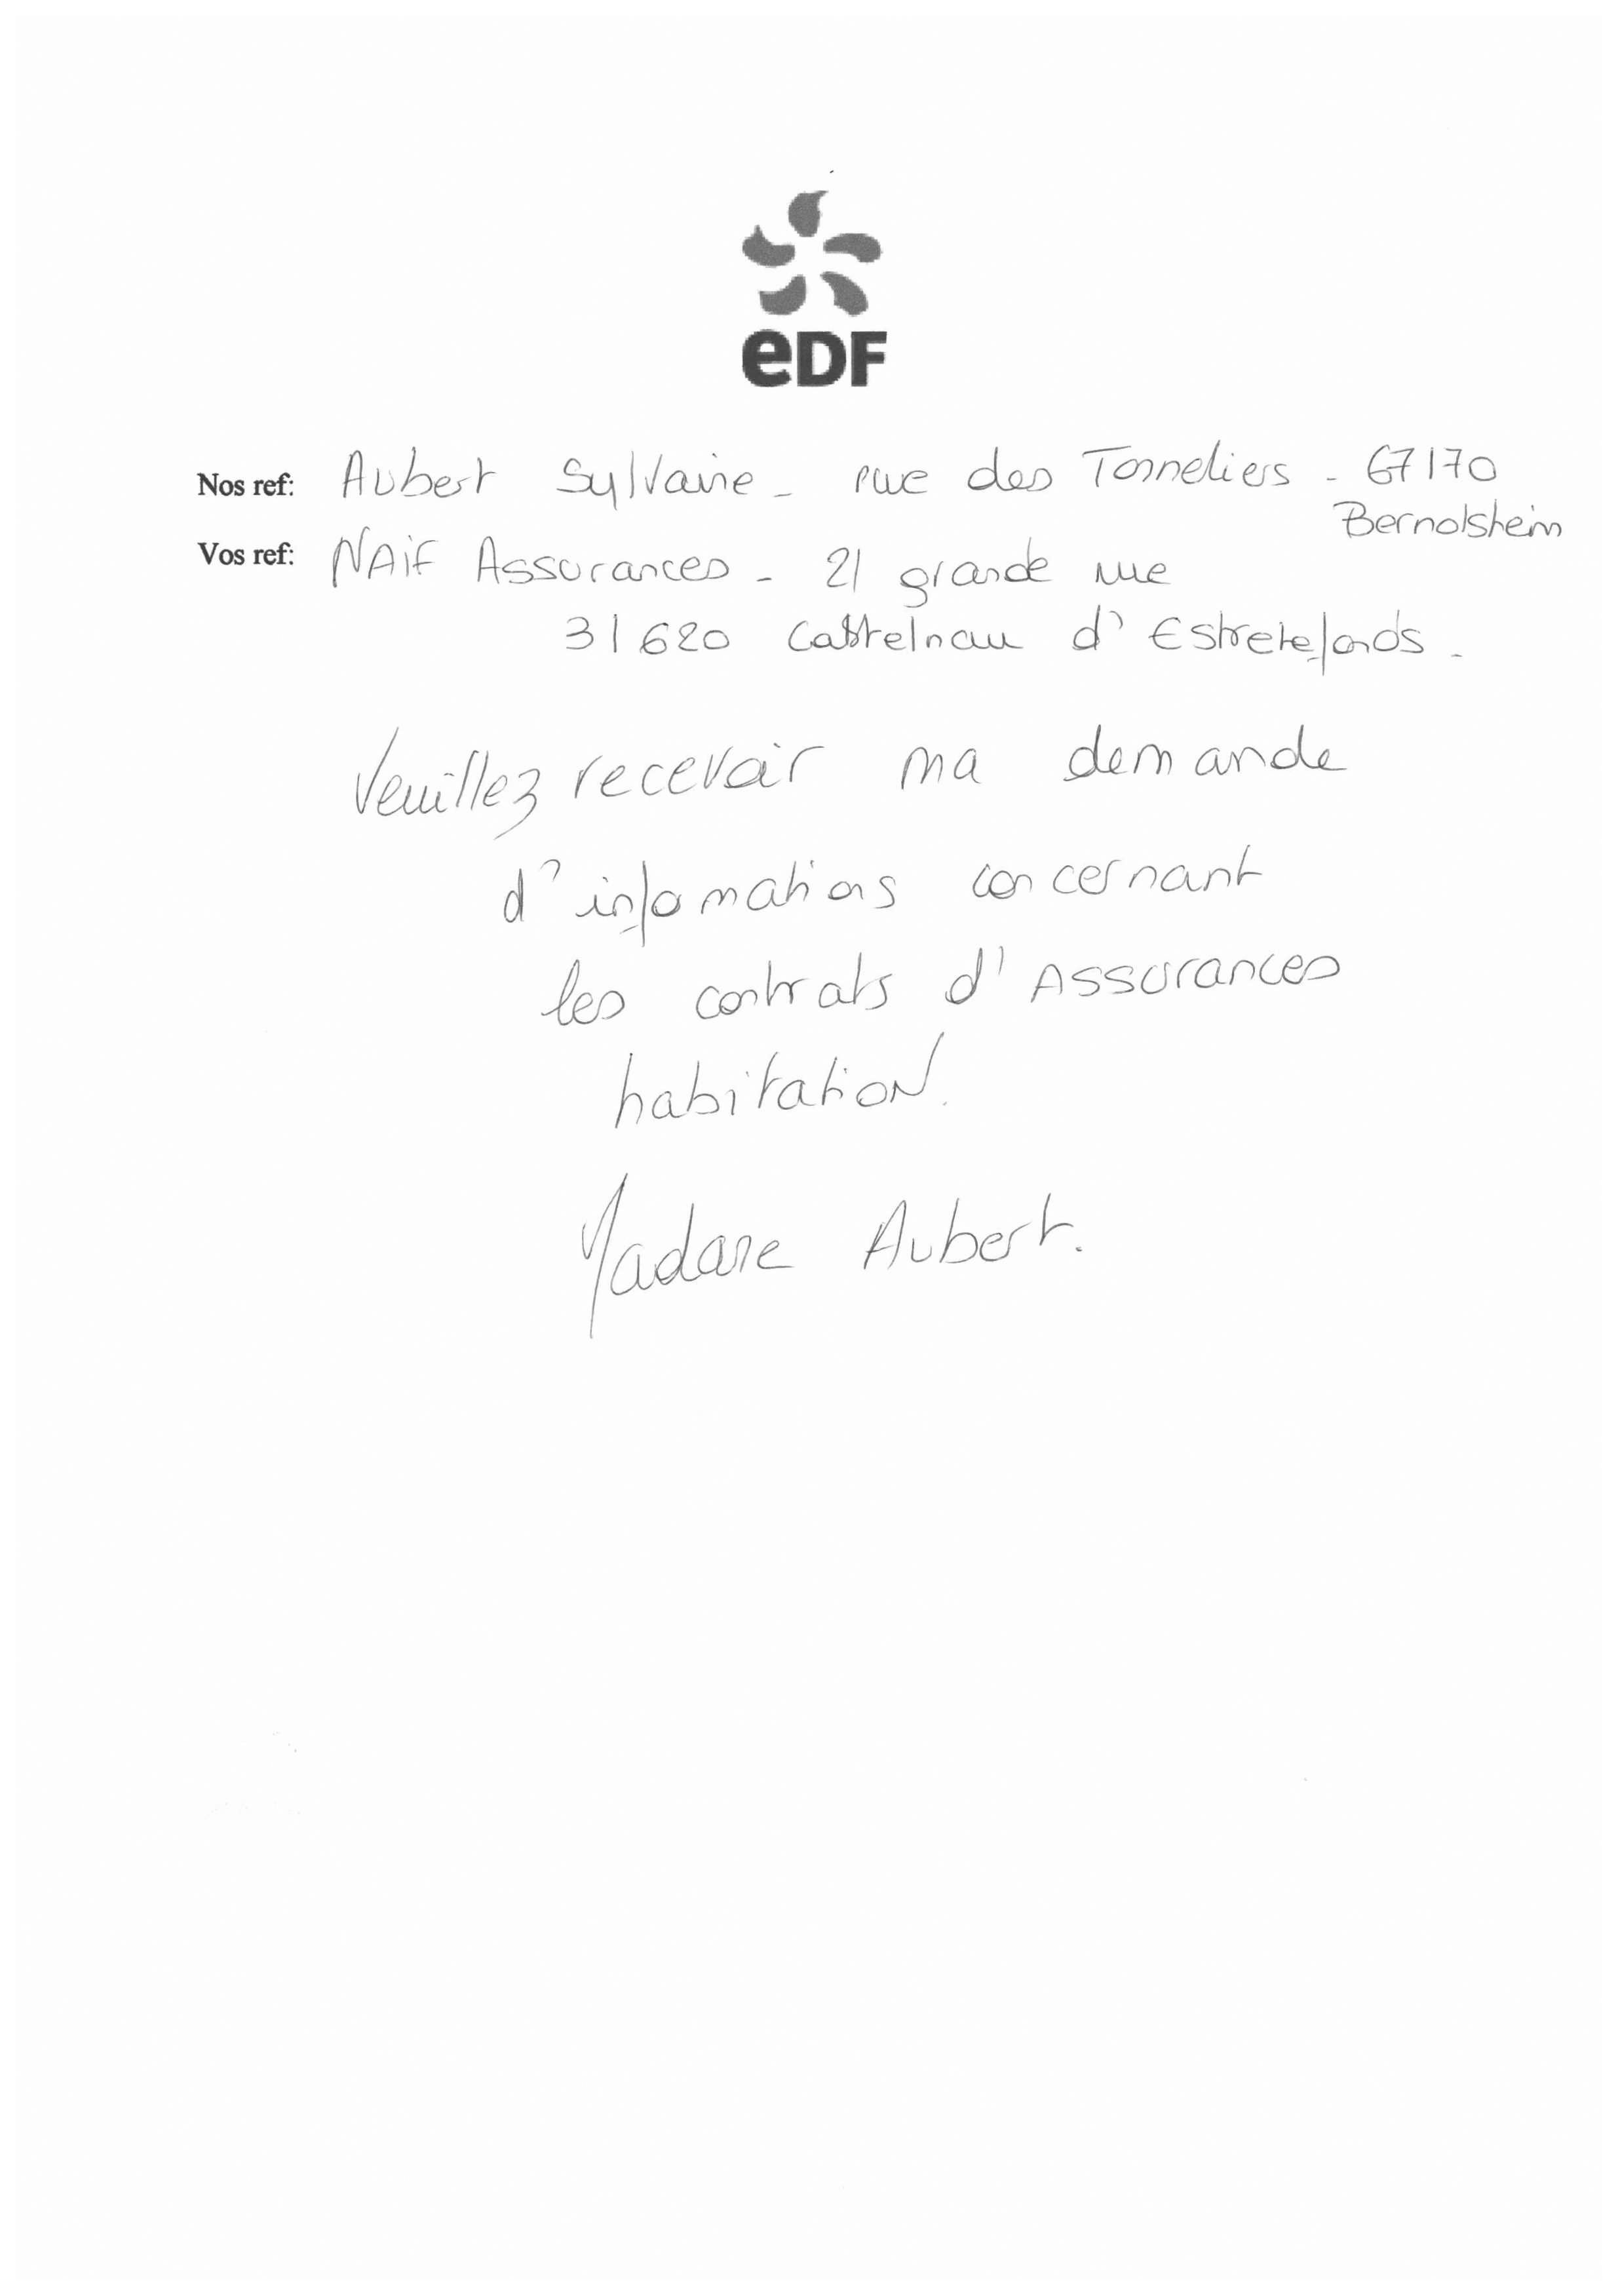 eDF
Nos ref: Aubert Sylvaine - rue des Tonneliers - 67170
Bernolshein
Vos ref: NAIF Assurances - 21 grande rue
31620 Castelnau d'Estretefonds -
Veuillez recevoir ma demande
d'infomations concernant
les contrats d'Assurances
habitation.
Madame Aubert.